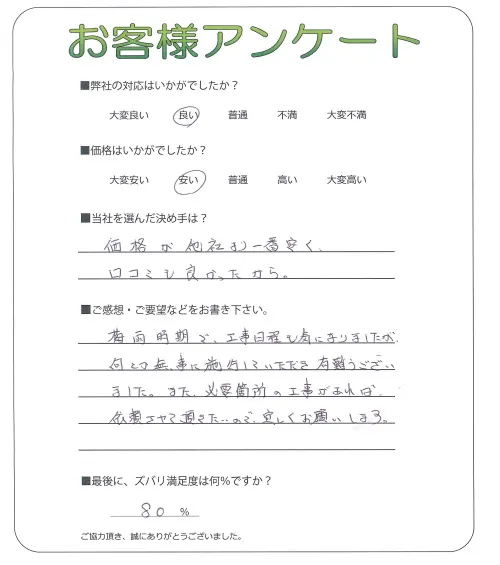 お客様アンケート
■弊社の対応はいかがでしたか？
大変良い 良い 普通 不満 大変不満
■価格はいかがでしたか？
大変安い 安い 普通 高い 大変高い
■当社を選んだ決め手は？
価格が他社より一番安く、
口コミも良かったから。
■ご感想・ご要望などをお書き下さい。
梅雨時期で、工事日程も気になりましたが、
何とか無事に施行していただき有難うござい
ました。また、必要箇所の工事があれば、
依頼させて頂きた…ので、宜しくお願いします。
■最後に、ズバリ満足度は何％ですか？
80 %
ご協力頂き、誠にありがとうございました。